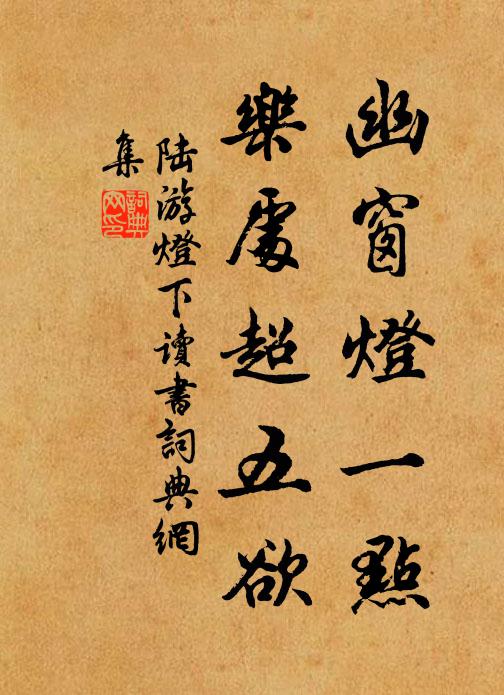 幽窗燈一點
樂處超五欲
陸游燈下讀書詞典網
集
詞典网印